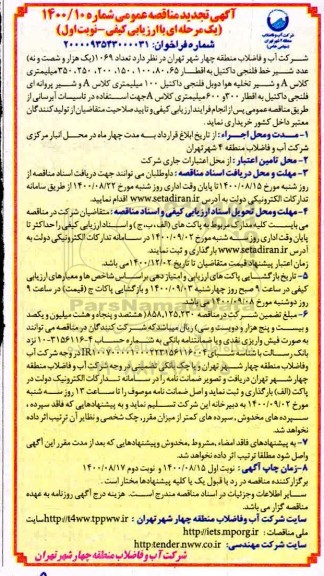 آگهی تجدید مناقصه عمومی شماره ۱۴۰۰/۱۰
(یک مرحله ای با ارزیابی کیفی - نوبت اول)
شماره فراخوان: ۲۰۰۰۰۹۳۵۴۳۰۰۰۰۳۱
شرکت آب و فاضلاب منطقه چهار شهر تهران در نظر دارد تعداد ۱۰۶۹ (یک هزار و شصت و نه)
عدد شیر خط فلنجی داکتیل به اقطار ۶۵، ۸۰، ۱۰۰، ۱۵۰، ۲۰۰، ۲۵۰، ۳۵۰ میلیمتری
کلاس A و شیر تخلیه هوا دوبل فلنجی داکتیل ۱۰۰ میلیمتری کلاس A و شیر پروانه ای
فلنجی داکتیل به اقطار ۳۰۰ و ۶۰۰ میلیمتری کلاس A جهت استفاده در تاسیسات آبرسانی از
طریق مناقصه عمومی پس از انجام فرایند ارزیابی کیفی و تایید صلاحیت متقاضیان از تولیدکنندگان
معتبر داخل کشور خریداری نماید.
۱- مدت و محل اجراء: از تاریخ ابلاغ قرارداد به مدت چهار ماه در محل انبار مرکزی
شرکت آب و فاضلاب منطقه ۴ شهر تهران
۲- محل تامین اعتبار: از محل اعتبارات جاری شرکت
۳- مهلت و محل دریافت اسناد مناقصه: داوطلبان می توانند جهت دریافت اسناد مناقصه از
روز شنبه مورخ ۱۴۰۰/۰۸/۱۵ تا پایان وقت اداری روز شنبه مورخ ۱۴۰۰/۰۸/۲۲ از طریق سامانه
تدارکات الکترونیکی دولت به آدرس www.setadiran.ir اقدام نمایند.
۴- مهلت و محل تحویل اسناد ارزیابی کیفی و اسناد مناقصه: متقاضیان شرکت در مناقصه
می بایست کلیه مدارک مربوط به پاکت های (الف، ب، ج) و اسناد ارزیابی کیفی را حداکثر تا
پایان وقت اداری روز سه شنبه مورخ ۱۴۰۰/۰۹/۰۲ در سامانه تدارکات الکترونیکی دولت به
آدرس www.setadiran.ir بارگذاری و ثبت نمایند.
زمان اعتبار پیشنهاد قیمت متقاضیان تا تاریخ ۱۴۰۰/۱۲/۰۲ می باشد.
۵- تاریخ بازگشایی پاکت های ارزیابی و امتیازدهی براساس شاخص ها و معیارهای ارزیابی
کیفی در ساعت ۹ صبح روز چهارشنبه ۱۴۰۰/۰۹/۰۳ و بازگشایی پاکات ج (قیمت) در ساعت ۹
روز دوشنبه مورخ ۱۴۰۰/۰۹/۰۸ می باشد.
۶- مبلغ تضمین شرکت در مناقصه ۸۵۸,۱۲۵,۲۳۰ (هشتصد و پنجاه و هشت میلیون و یکصد
و بیست و پنج هزار و دویست و سی) ریال میباشد که شرکت کنندگان در مناقصه می توانند
به صورت فیش واریزی نقدی و یا ضمانتنامه بانکی به شماره حساب ۱۰۰-۳۱۵۶۱۱۶-۴ نزد
بانک رسالت با شناسه شبای
وفاضلاب منطقه چهار شهر تهران و یا چک بانکی تضمینی در وجه شرکت آب و فاضلاب منطقه
چهار شهر تهران دریافت و تصویر ضمانت نامه را در سامانه تدارکات الکترونیک دولت در
پاکت (الف) بارگذاری و ثبت نماید و اصل ضمانت نامه موصوف را تا ساعت ۱۳ روز سه شنبه
مورخ ۱۴۰۰/۰۹/۰۲ به دبیرخانه این شرکت تسلیم نماید و به پیشنهادهایی که فاقد سپرده،
سپرده های مخدوش، سپرده های کمتر از میزان مقرر، چک شخصی و نظایر آن ترتیب اثر داده
نخواهد شد.
۷- به پیشنهادهای فاقد امضاء، مشروط، مخدوش و پیشنهادهایی که بعد از مدت مقرر این آگهی
واصل شود مطلقا ترتیب اثر داده نخواهد شد.
۸- زمان چاپ آگهی: نوبت اول ۱۴۰۰/۰۸/۱۵ و نوبت دوم ۱۴۰۰/۰۸/۱۷
برگزارکننده مناقصه در رد یا قبول یک یا کلیه پیشنهادها مختار است.
سایر اطلاعات و جزئیات در اسناد مناقصه مندرج است. هزینه درج آگهی روزنامه به عهده
مناقصه گزار می باشد.
سایت شرکت آب و فاضلاب منطقه چهار شهر تهران: http://t4ww.tppww.ir سایت
ملی مناقصات: http://iets.mporg.ir
سایت شرکت مهندسی: http:tender.nww.co.ir
شرکت آب و فاضلاب منطقه چهار شهر تهران